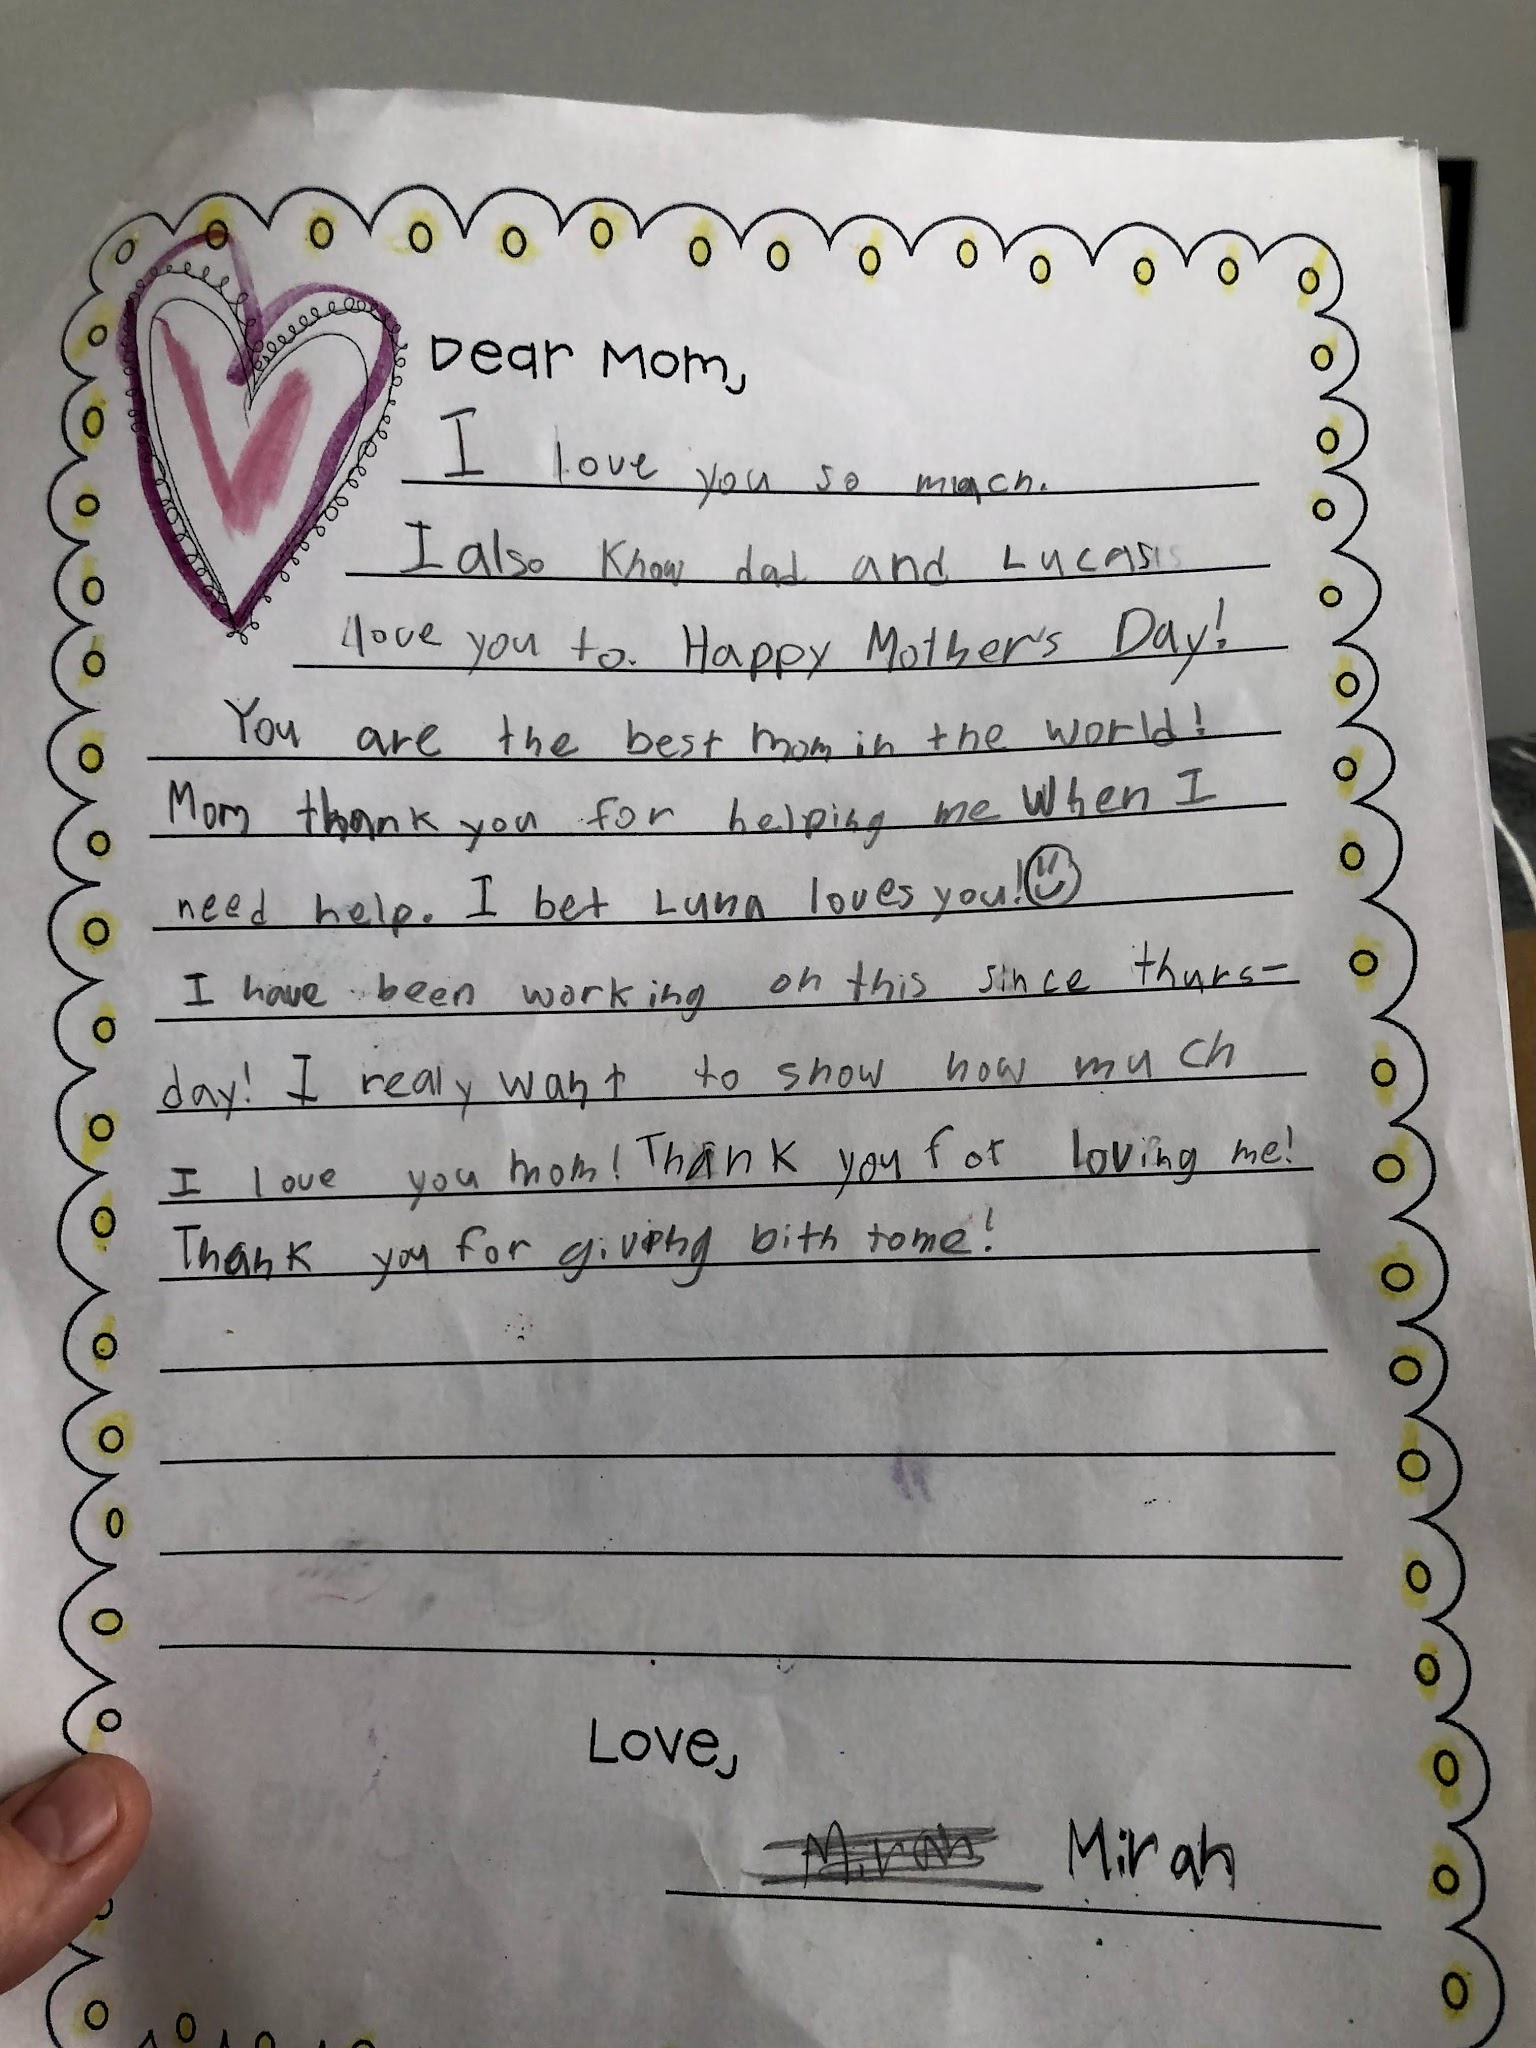 Dear Mom,
I love you so much.
I also know dad and Lucas
love you to. Happy Mother's Day!
You are the best mom in the world!
Mom thank you for helping me When I
need help. I bet Luna loves you!
I have been working on this since thurs-
day! I realy want to show how much
I love you mom! Thank you for loving me!
Thank you for giving bith to me!
Love,
Mirah Mirah